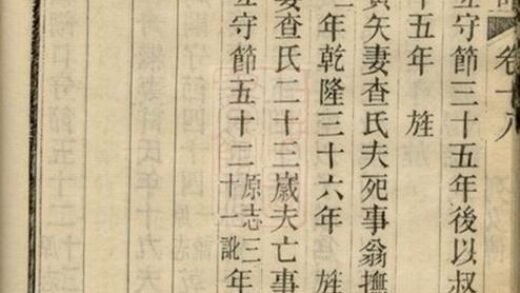 卷十八
守節三十五年後以叔
十五年 旌
矢妻查氏夫死事翁撫
年乾隆三十六年 旌
查氏二十三歲夫亡事
守節五十二原志三十一訛年